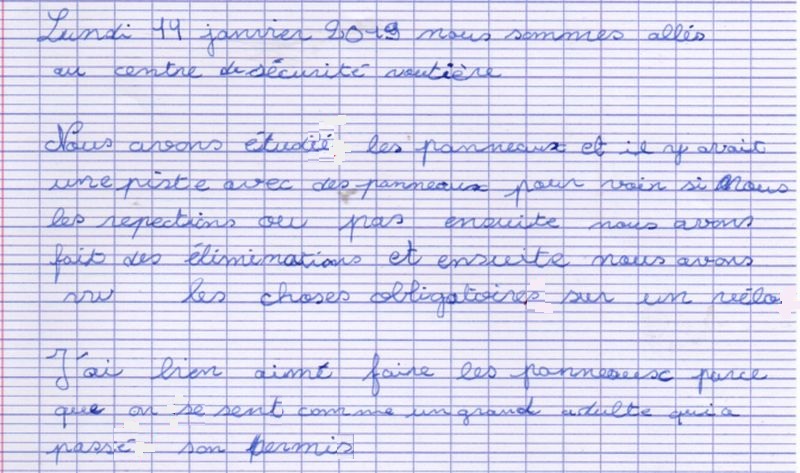 Lundi 14 janvier 2019 nous sommes allés
au centre de sécurité routière
Nous avons étudié les panneaux et il y avait
une piste avec des panneaux pour voir si Nous
les repections ou pas ensuite nous avons
fait des éliminations et ensuite nous avons
vu les choses obligatoires sur un vélo
J'ai bien aimé faire les panneaux parce
que on se sent comme un grand adulte qui a
passé son permis